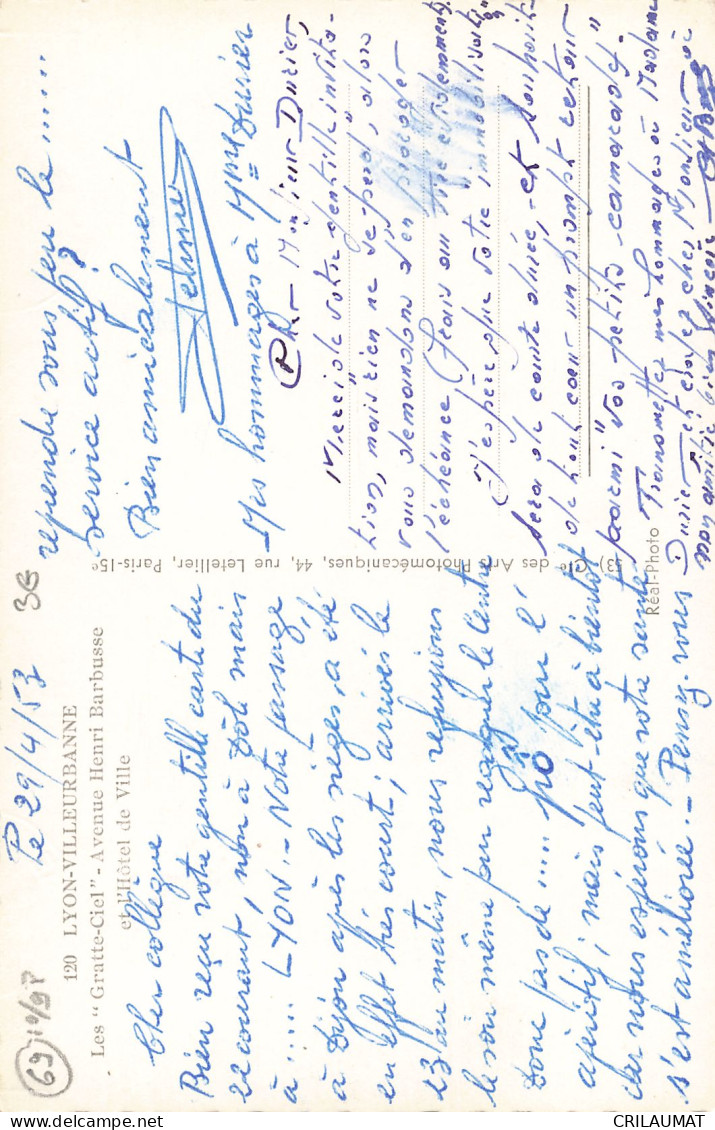 Le 29/4/53
36
69
10/98
120 LYON-VILLEURBANNE
Les "Gratte-Ciel" - Avenue Henri Barbusse
et l'Hôtel de Ville
Cher collègue
Bien reçu votre gentille carte du
22 courant, non à Dôle mais
à ..... LYON. - Notre passage
à Dijon après les neiges, a été
en effet très court; arrivés le
23 au matin, nous refuyions
le soir même pour regagner le Centre
Donc pas de ..... pô pour l'
apéritif; mais peut-être à bientôt
car nous espérons que votre santé
s'est améliorée. - Pensez-vous
reprendre sous peu le .....
service actif?
Bien amicalement
Mes hommages à Mme Durier
53) Cie des Arts Photomécaniques, 44, rue Letellier, Paris-15e
Réal-Photo
Cher Monsieur Durier,
Merci de votre gentille invita-
tion, mais rien ne se perd, alors
vous demandons d'en proroger
l'échéance (frais en sus évidemment)
J'espère que votre "immobilisation"
sera de courte durée, et souhaite
de tout coeur un prompt retour
parmi "vos petits camarades"
Transmettez mes hommages à Madame
Durier et croyez cher Monsieur à
mon amitié bien sincère
CRILAUMAT